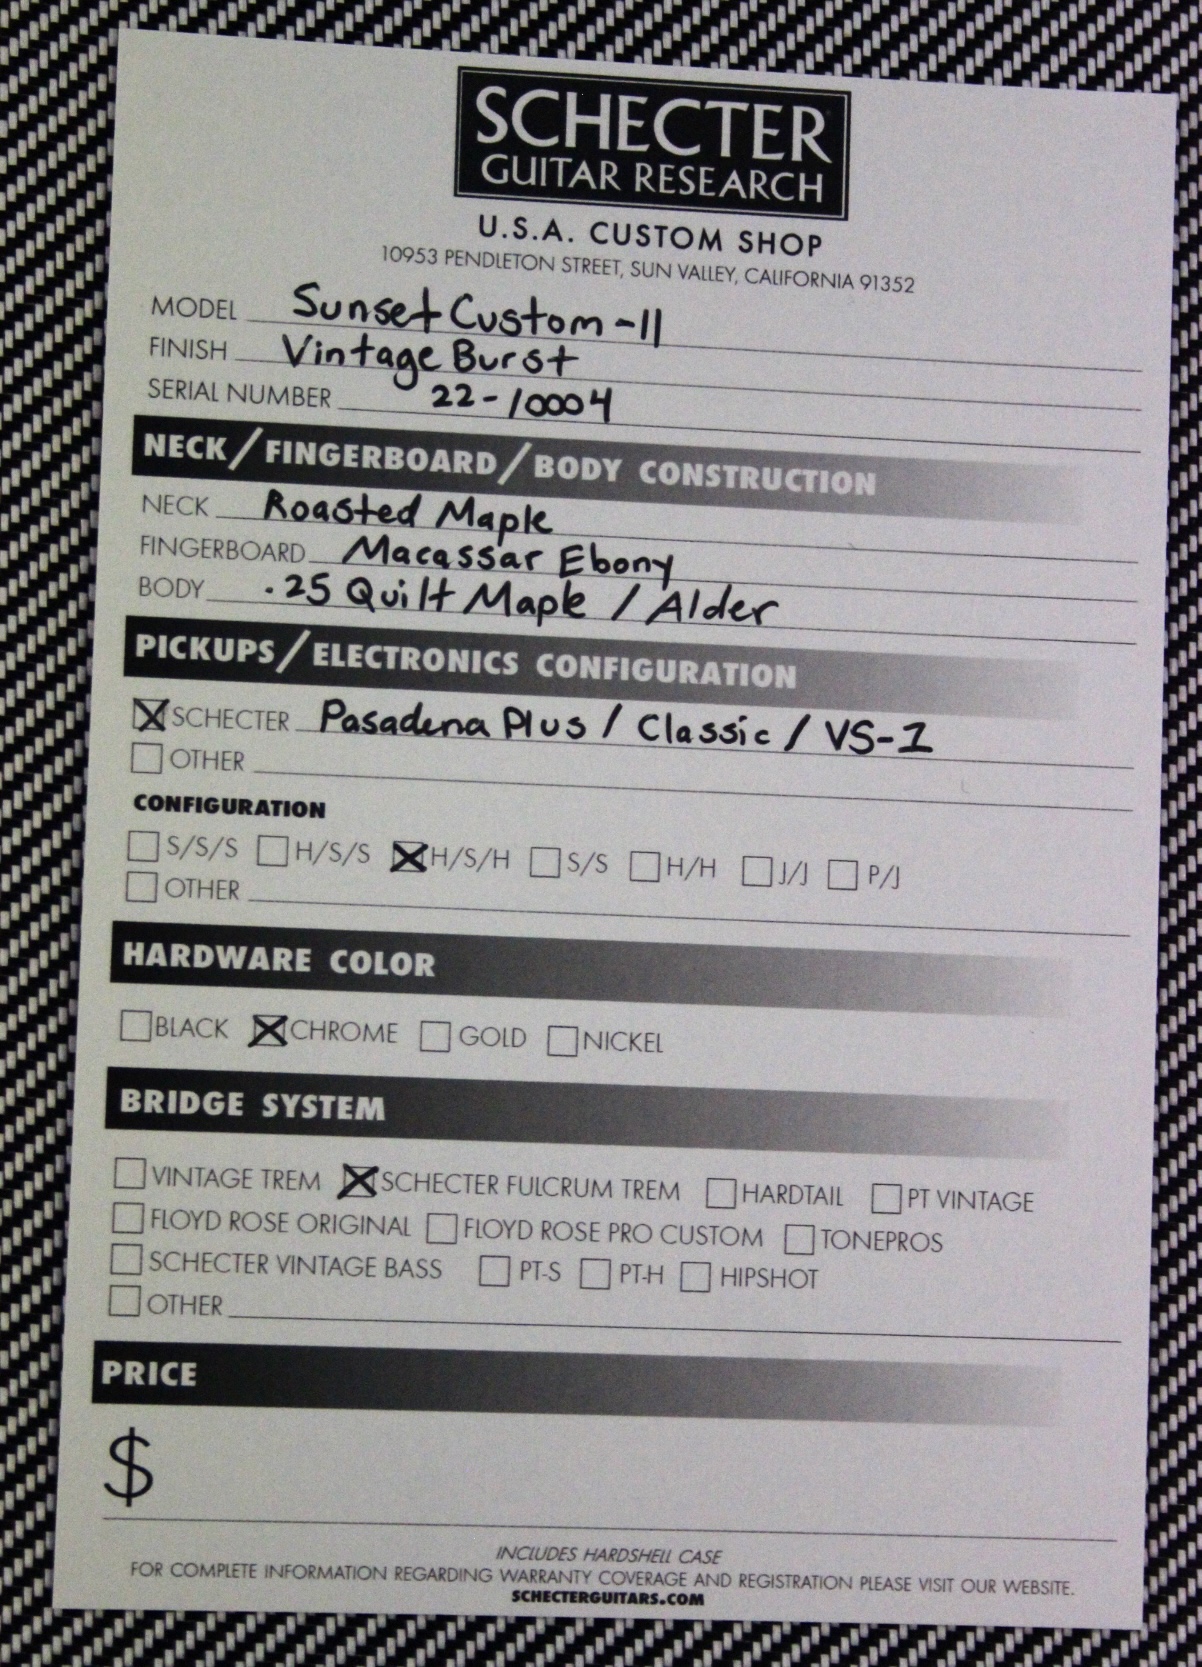 SCHECTER
GUITAR RESEARCH
U.S.A. CUSTOM SHOP
10953 PENDLETON STREET, SUN VALLEY, CALIFORNIA 91352
MODEL Sunset Custom-II
FINISH Vintage Burst
SERIAL NUMBER 22-10004
NECK/FINGERBOARD/BODY CONSTRUCTION
NECK Roasted Maple
FINGERBOARD Macassar Ebony
BODY .25 Quilt Maple / Alder
PICKUPS/ELECTRONICS CONFIGURATION
SCHECTER Pasadena Plus / Classic / VS-1
OTHER
CONFIGURATION
S/S/S H/S/S H/S/H S/S H/H J/J P/J
OTHER
HARDWARE COLOR
BLACK CHROME GOLD NICKEL
BRIDGE SYSTEM
VINTAGE TREM SCHECTER FULCRUM TREM HARDTAIL PT VINTAGE
FLOYD ROSE ORIGINAL FLOYD ROSE PRO CUSTOM TONEPROS
SCHECTER VINTAGE BASS PT-S PT-H HIPSHOT
OTHER
PRICE
$
INCLUDES HARDSHELL CASE
FOR COMPLETE INFORMATION REGARDING WARRANTY COVERAGE AND REGISTRATION PLEASE VISIT OUR WEBSITE.
SCHECTERGUITARS.COM